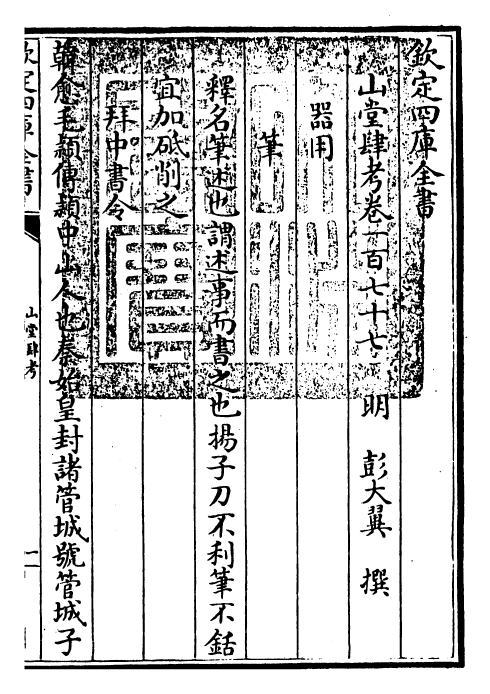 欽定四庫全書
山堂肆考卷一百七十七 明 彭大翼 撰
器用
筆
釋名筆述也謂述事而書之也揚子刀不利筆不銛
宜加砥削之
拜中書令
韓愈毛穎傳穎中山人也秦始皇封諸管城號管城子
欽定四庫全書
山堂肆考
一